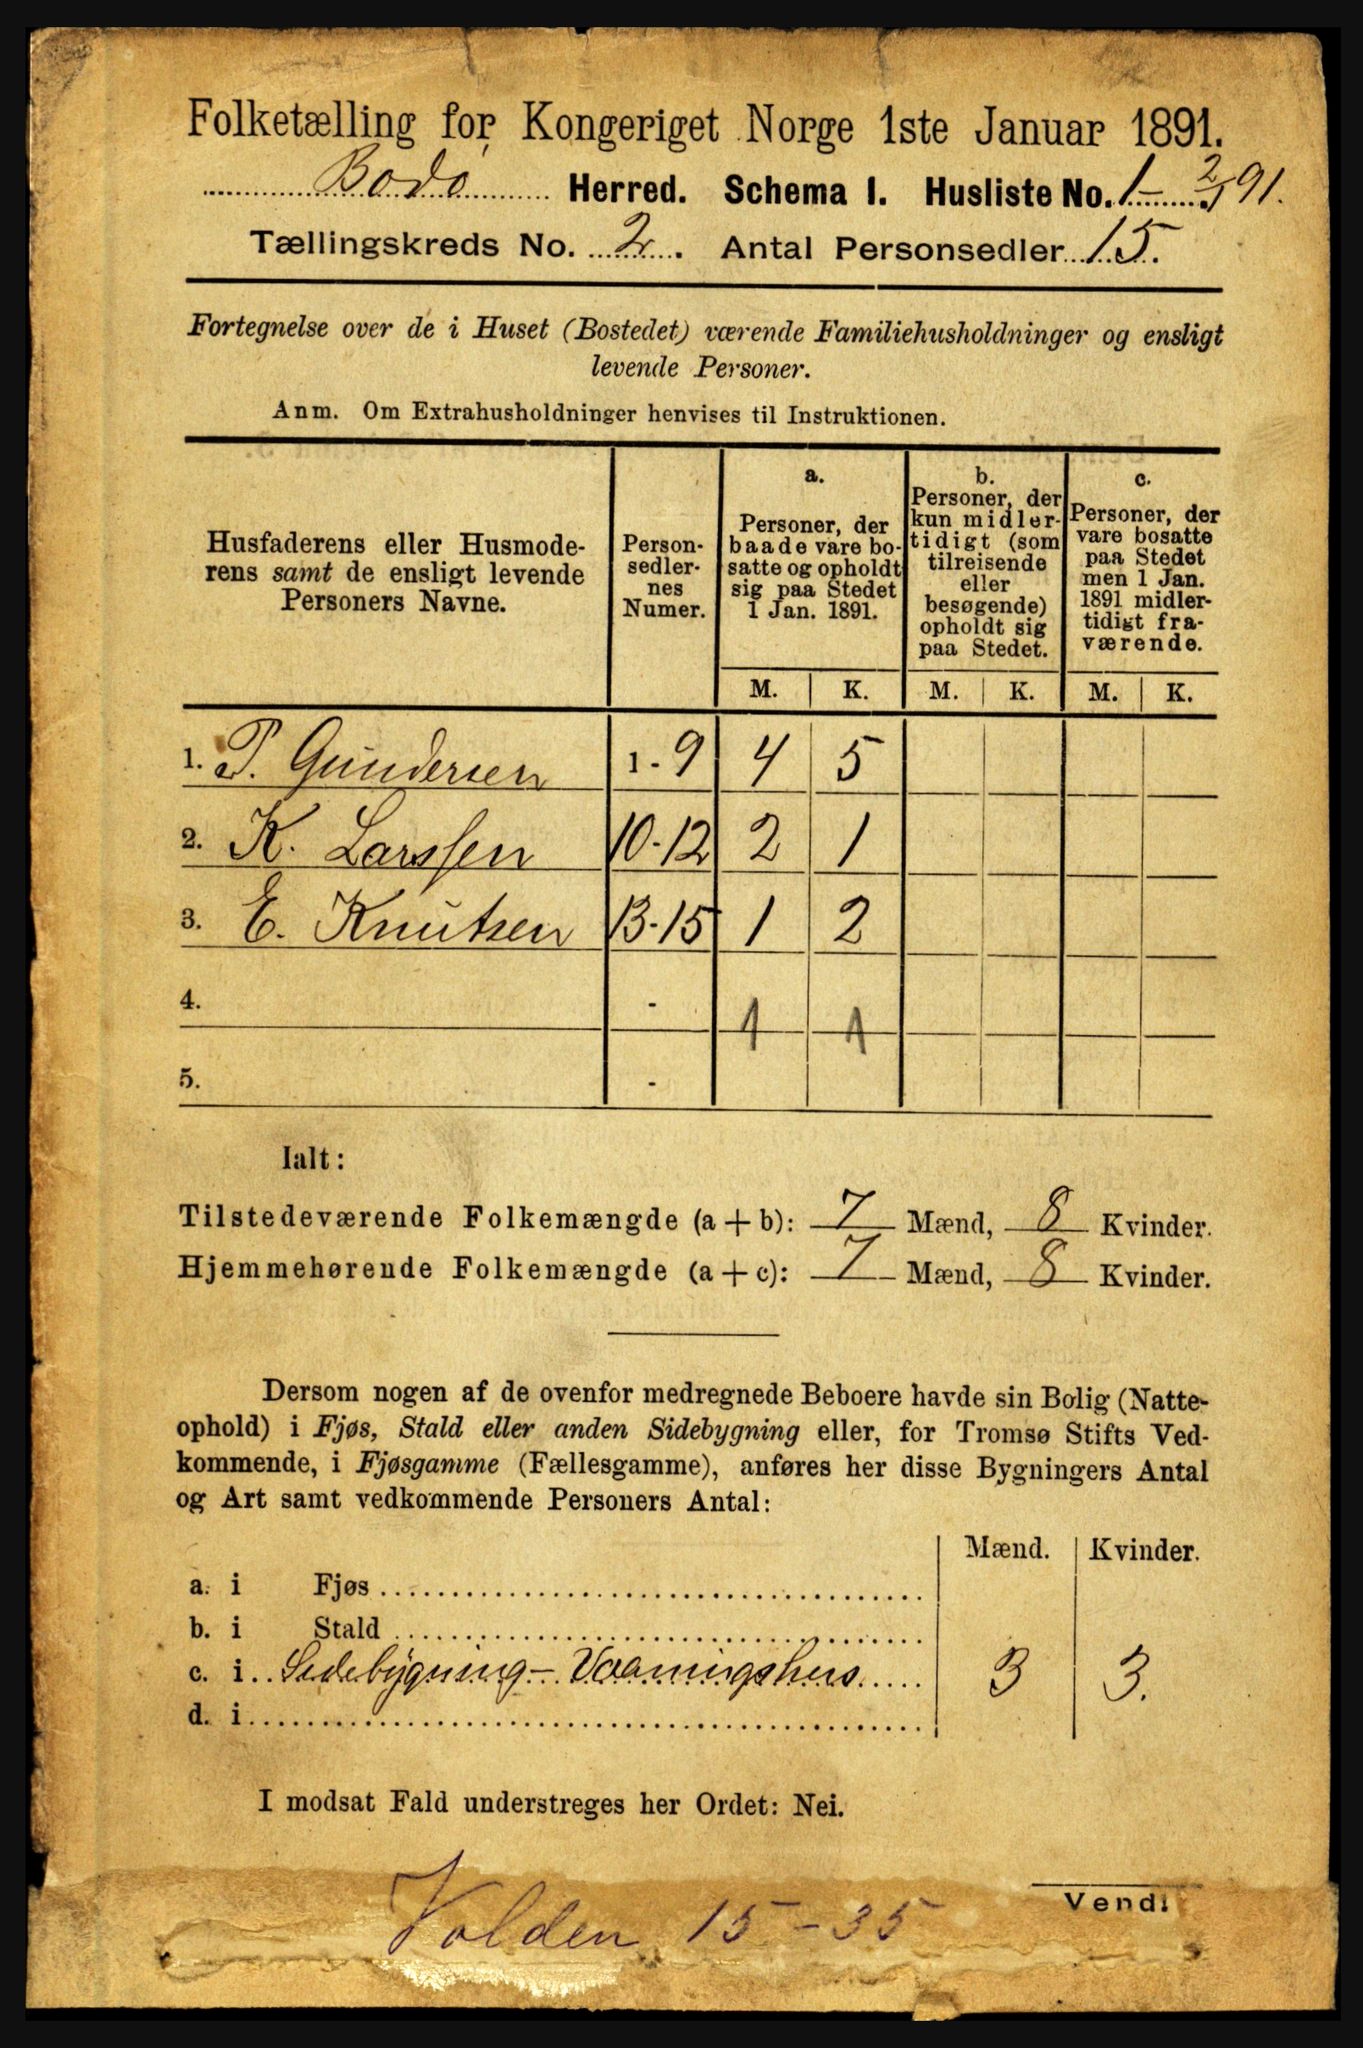 Folketælling for Kongeriget Norge 1ste Januar 1891.
Bodø Herred. Schema I. Husliste No. 1 - 2/1 91.
Tællingskreds No. 2. Antal Personsedler 15.
Fortegnelse over de i Huset (Bostedet) værende Familiehusholdninger og ensligt
levende Personer.
Anm. Om Extrahusholdninger henvises til Instruktionen.
Husfaderens eller Husmode-
rens samt de ensligt levende
Personers Navne.
Person-
sedler-
nes
Numer.
a.
Personer, der
baade vare bo-
satte og opholdt
sig paa Stedet
1 Jan. 1891.
b.
Personer, der
kun midler-
tidigt (som
tilreisende
eller
besøgende)
opholdt sig
paa Stedet.
c.
Personer, der
vare bosatte
paa Stedet
men 1 Jan.
1891 midler-
tidigt fra-
værende.
M. K. M. K. M. K.
1. P. Gundersen 1 - 9 4 5
2. K. Larssen 10-12 2 1
3. E. Knutsen 13-15 1 2
4. - 1 1
5. -
Ialt:
Tilstedeværende Folkemængde (a + b): 7 Mænd, 8 Kvinder.
Hjemmehørende Folkemængde (a + c): 7 Mænd, 8 Kvinder.
Dersom nogen af de ovenfor medregnede Beboere havde sin Bolig (Natte-
ophold) i Fjøs, Stald eller anden Sidebygning eller, for Tromsø Stifts Ved-
kommende, i Fjøsgamme (Fællesgamme), anføres her disse Bygningers Antal
og Art samt vedkommende Personers Antal:
Mænd. Kvinder.
a. i Fjøs
b. i Stald
c. i Sidebygning - Vaaningshus 3 3.
d. i
I modsat Fald understreges her Ordet: Nei.
Vend!
Volden 15-35